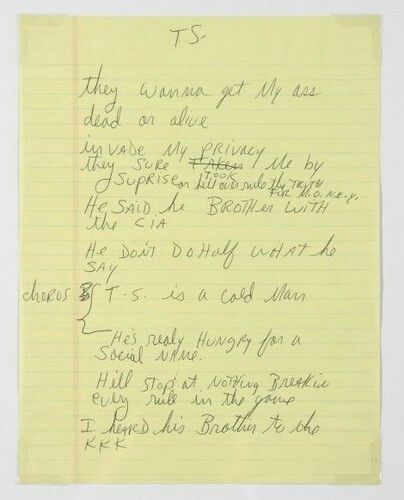 TS.
they wanna get My ass
dead or alive
inVADE My PRIVACY
they SURE TAKen TOOK Me by
SUPRISE or hell over rule the TRUTH
FOR M.O.N.E.Y.
He SAID he BROTHER WITH
the CIA
He DON'T DO Half WHAT he
SAY
chorus T.S. is a cold Man
He's realy HUNGRY for a
Social NAME.
Hell STOP at NOTHING BReakin
every rule in the game
I heard his Brother to the
KKK